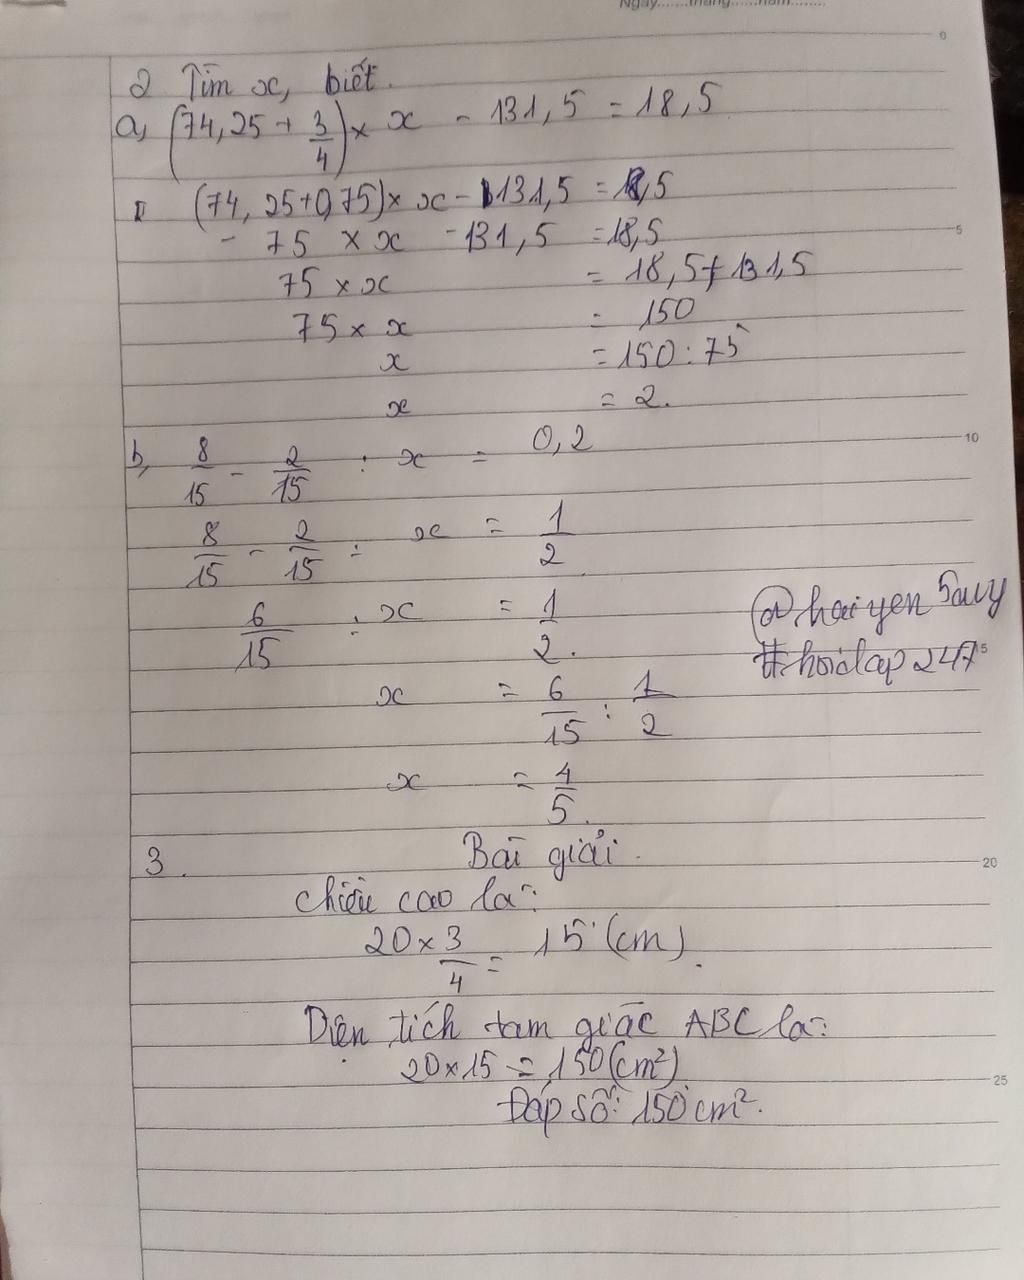 Ngày.......tháng......năm........
2 Tìm x, biết.
a, (74,25 + 3/4) × x - 131,5 = 18,5
(74,25+0,75) × x - 131,5 = 18,5
- 75 × x - 131,5 = 18,5
75 × x = 18,5 + 131,5
75 × x = 150
x = 150 : 75
x = 2.
b, 8/15 - 2/15 : x = 0,2
8/15 - 2/15 : x = 1/2
6/15 : x = 1/2.
@haiyen5auy
#hoidap247
x = 6/15 : 1/2
x = 4/5.
3. Bài giải.
Chiều cao là:
20 × 3/4 = 15 (cm).
Diện tích tam giác ABC là:
20×15 = 150 (cm²)
Đáp số: 150 cm².
0
5
10
5
20
25